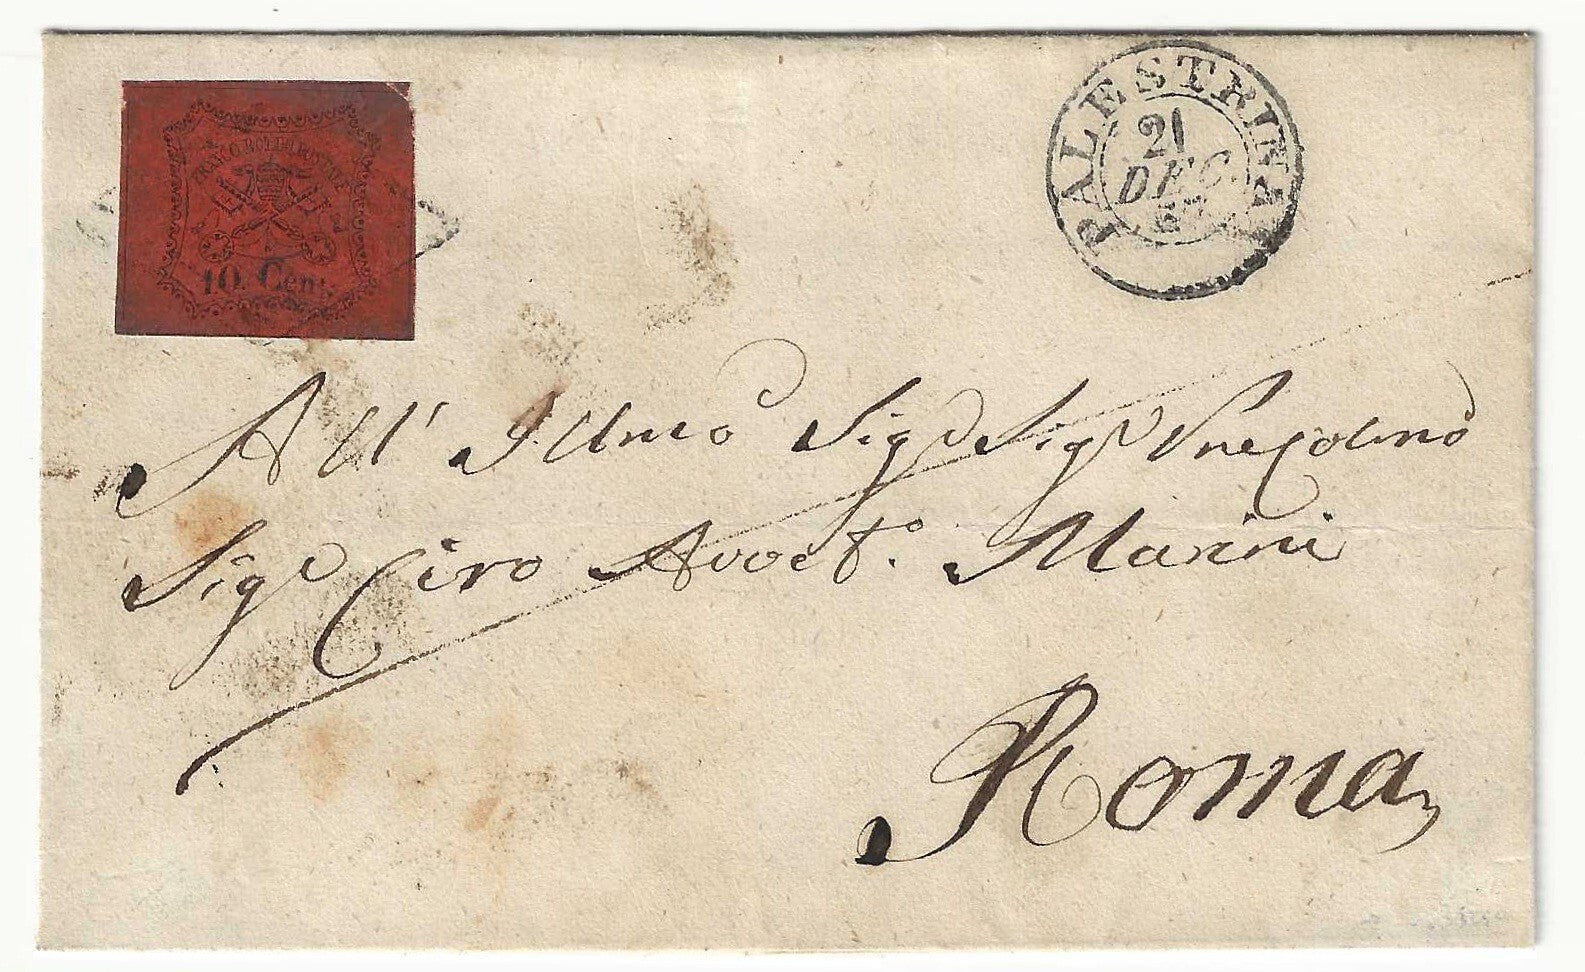 FRANCO BOLLO POSTALE
10. Cent.
PALESTRINA
21
DEC.
67
All' Illmo Sigr Sigr Pne Colmo
Sigr Ciro Avvet.o Marini
Roma